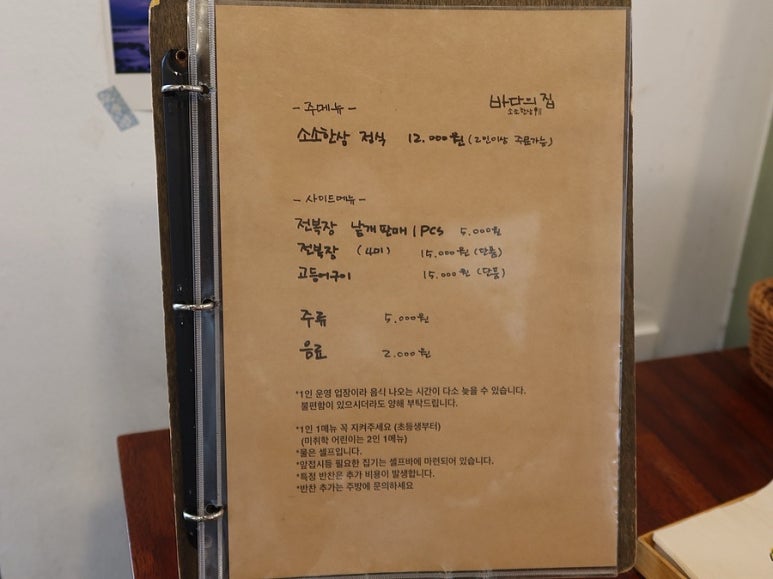 바다의 집
소소한상
- 주메뉴 -
소소한상 정식 12.000원 (2인이상 주문가능)
- 사이드메뉴 -
전복장 낱개판매 1PCS 5.000원
전복장 (4미) 15.000원 (단품)
고등어구이 15.000원 (단품)
주류 5.000원
음료 2.000원
*1인 운영 업장이라 음식 나오는 시간이 다소 늦을 수 있습니다.
불편함이 있으시더라도 양해 부탁드립니다.
*1인 1메뉴 꼭 지켜주세요 (초등생부터)
(미취학 어린이는 2인 1메뉴)
*물은 셀프입니다.
*앞접시등 필요한 집기는 셀프바에 마련되어 있습니다.
*특정 반찬은 추가 비용이 발생합니다.
*반찬 추가는 주방에 문의하세요